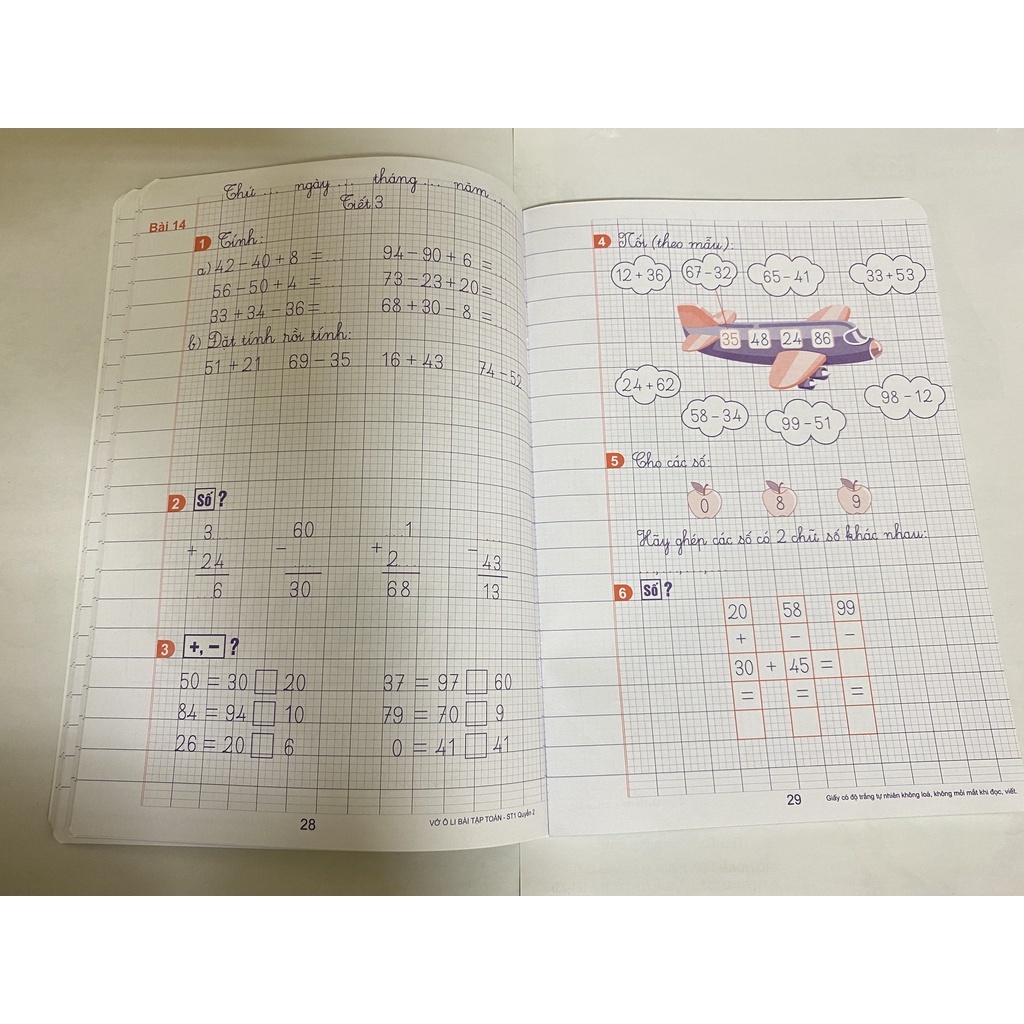 Thứ .... ngày .... tháng .... năm ....
Tiết 3
Bài 14
1 Tính:
a) 42 - 40 + 8 = .... 94 - 90 + 6 = ....
56 - 50 + 4 = .... 73 - 23 + 20 = ....
33 + 34 - 36 = .... 68 + 30 - 8 = ....
b) Đặt tính rồi tính:
51 + 21 69 - 35 16 + 43 74 - 52
2 Số ?
3... 60 ...1
+ - + -
24 ... 2... 43
...6 30 68 13
3 +, - ?
50 = 30 □ 20 37 = 97 □ 60
84 = 94 □ 10 79 = 70 □ 9
26 = 20 □ 6 0 = 41 □ 41
28
VỞ Ô LI BÀI TẬP TOÁN - ST1 Quyển 2
4 Nối (theo mẫu):
12 + 36 67 - 32 65 - 41 33 + 53
35 48 24 86
24 + 62 58 - 34 99 - 51 98 - 12
5 Cho các số:
0 8 9
Hãy ghép các số có 2 chữ số khác nhau:
....,....,....,....
6 Số ?
20 58 99
+ - -
30 + 45 =
= = =
29
Giấy có độ trắng tự nhiên không loá, không mỏi mắt khi đọc, viết.